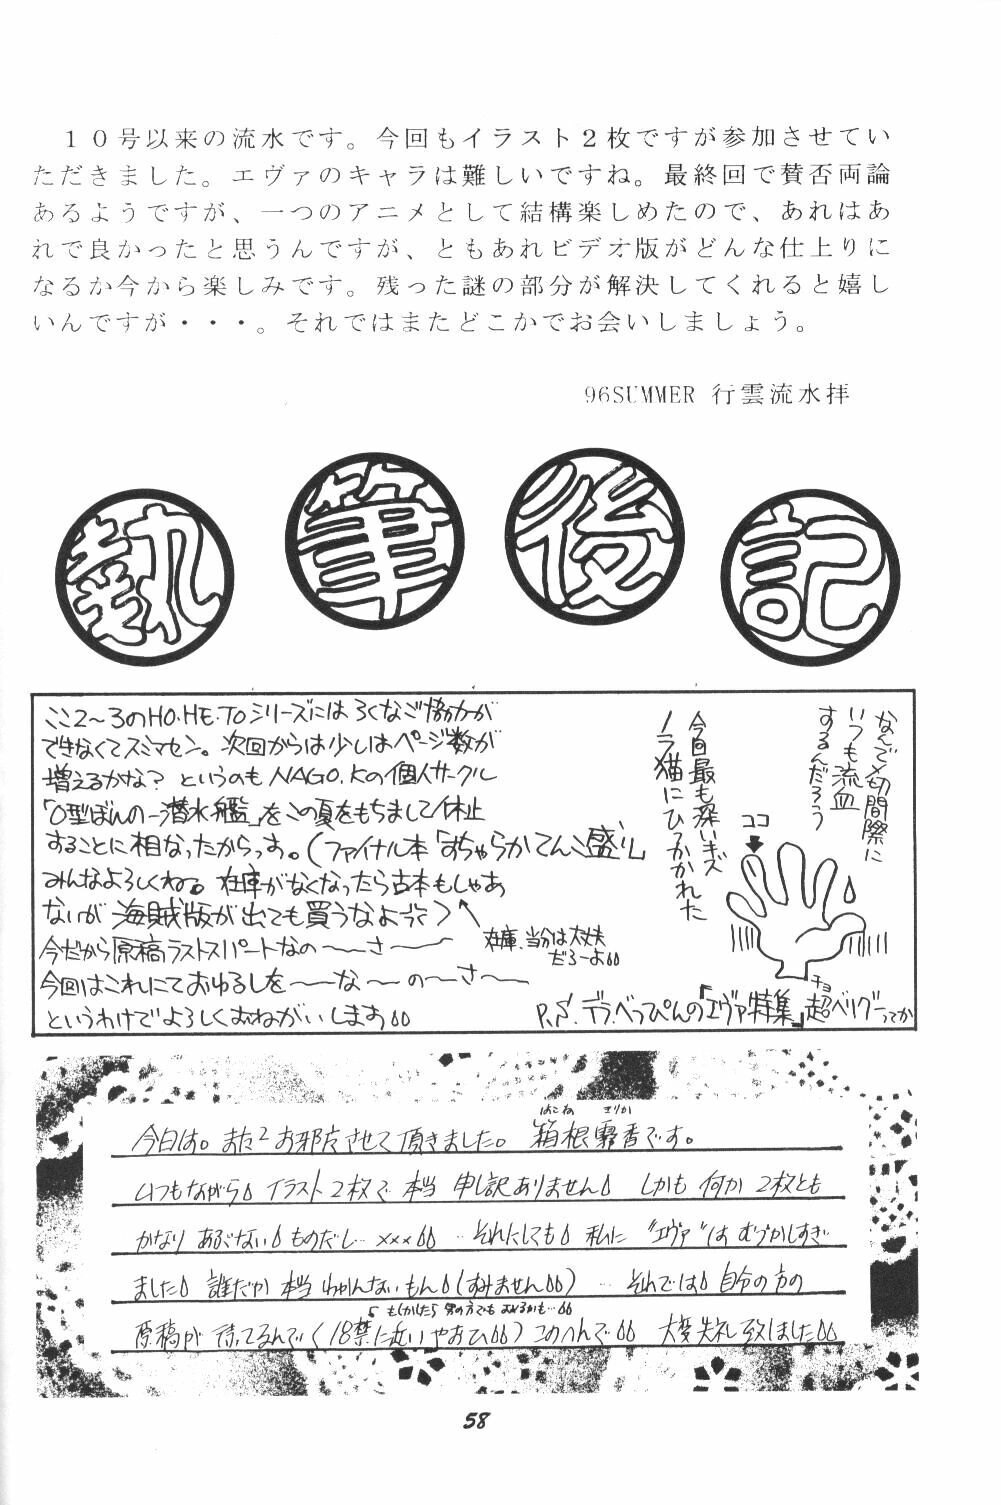 １０号以来の流水です。今回もイラスト２枚ですが参加させてい
ただきました。エヴァのキャラは難しいですね。最終回で賛否両論
あるようですが、一つのアニメとして結構楽しめたので、あれはあ
れで良かったと思うんですが、ともあれビデオ版がどんな仕上りに
なるか今から楽しみです。残った謎の部分が解決してくれると嬉し
いんですが・・・。それではまたどこかでお会いしましょう。
96SUMMER 行雲流水拝
執筆後記
ここ2〜3のHO・HE・TOシリーズにはろくなご協力が
できなくてスミマセン。次回からは少しはページ数が
増えるかな? というのもNAGO.Kの個人サークル
「O型ぼんの一潜水艦」をこの夏をもちまして休止
することに相なったからっす。(ファイナル本「おちゃらかてんこ盛り」
みんなよろしくね。在庫がなくなったら古本もしゃあ
ないが海賊版が出ても買うなよ)
在庫、当分は大丈夫
だろーよ
今だから原稿ラストスパートなの〜〜さ〜〜
今回はこれにておゆるしを〜〜な〜〜の〜さ〜〜
というわけでよろしくおねがいします
なんで〆切間際に
いつも流血
するんだろう
ココ
今回最も深いキズ
ノラ猫にひっかかれた
P.S.デラべっぴんの「エヴァ特集」超ベリグーってか
チョ
今日は。また2お邪魔させて頂きました。箱根霧香です。
はこね きりか
いつもながらイラスト2枚で本当申し訳ありません しかも何か2枚とも
かなりあぶないものだし…×××…それにしても私に"エヴァ"はむづかしすぎ
ました 誰だか本当わかんないもん(すみません)…それでは自分の方の
もしかしたら男の方でもおれるかも…
原稿が待ってるんで(18禁に近いやおひ)このへんで 大変失礼致しました
58